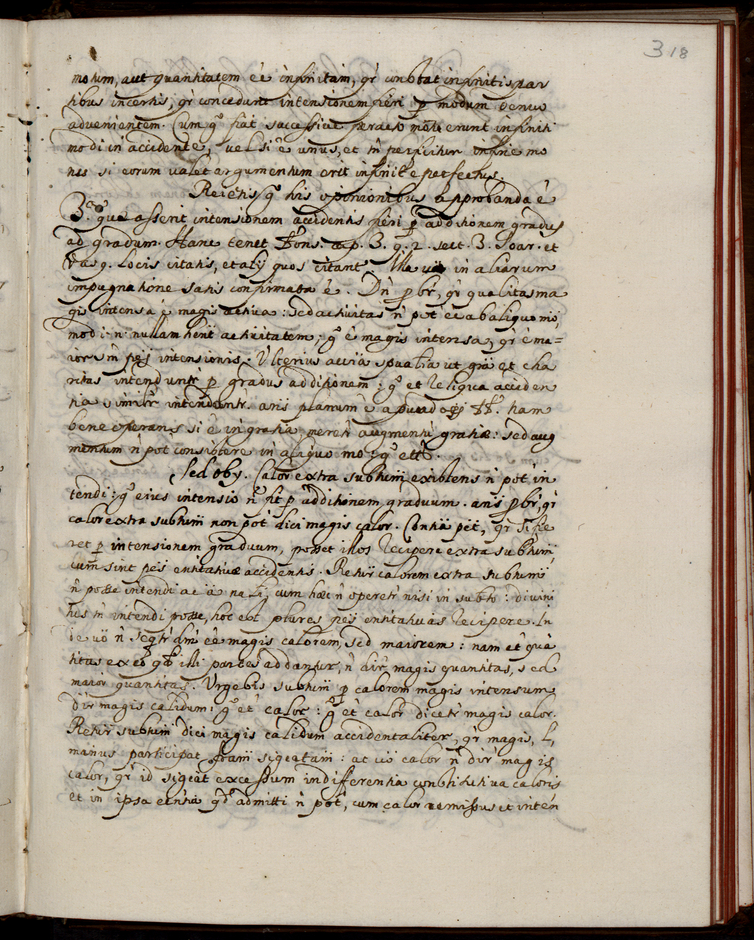 318
motum, aut quantitatem eē infinitam, qr constat infinitis par
tibus incertis; qr concedunt intensionem fieri p modum denuo
advenientem. Cum gͦ fiat sucessive erunt infiniti
modi in accidente, vel si ē unus, et tn perficitur infinie mo
nes si eorum valet argumentum erit infinitē perfectus.
Reietis gͦ his opinionibus approbanda ē
3.ª quae asserit intensionem accidentis fieri p additionem gradus
ad gradum. Hanc tenet Fons. 3. q. 2. sect. 3. Soar. et
Vasq. locis citatis, et alij quos citant. Illa in aliarum
impugnatione satis confirmata ē. Dn pbr, qr qualitas ma
gis intensa ē magis activa: sed activitas n pot eē ab aliquo mo,
modi n. nullam hent activitatem: gͦ ē magis intensa, qr ē ma=
iores in intensionis. Ulterius accīa spualia ut grā et cha
ritas intendunt p gradus additionem: gͦ et reliqua acciden
tia similr intendunt. ans planum ē apud oēs Th. nam
bene operans si ē in gratia meretr augmentū gratiae: sed aug
mentum n pot consistere in aliquo mo: gͦ
Sed obj. Calor extra subtum existens n pot in
tendi: gͦ eius intensio n fit p additionem graduum. ans pbr, qr
calor extra subtum non pot dici magis calor. Contra pet, qr si fie
ret p intensionem graduum, posset illos recipere extra subtum,
cum sint entitativae accidentis. Retur calorem extra subtum
n posse intendi ac ā nali, cum haec n operetr nisi in subto: divini
tus tn intendi posse, hoc est plures entitativas recipere. In
de vō n seqtr dmi eē magis calorem, sed maiorem: nam et quā
titas ex eō qd illi partes addantur, n dir magis quantitas, sed
maior quantitas. Urgebis subtum p calorem magis intensum
dir magis calidum: gͦ et calor: gͦ et calor dicetr magis calor.
Retur subtum dici magis calidum accidentaliter, qr magis, l,
manus participat fōrām sigctam: at vō calor n dir magis
calor, qr id sigcat excessum in differentia constitutiva caloris
et in ipsa essntia qd admitti n pot, cum calor remissus et inten